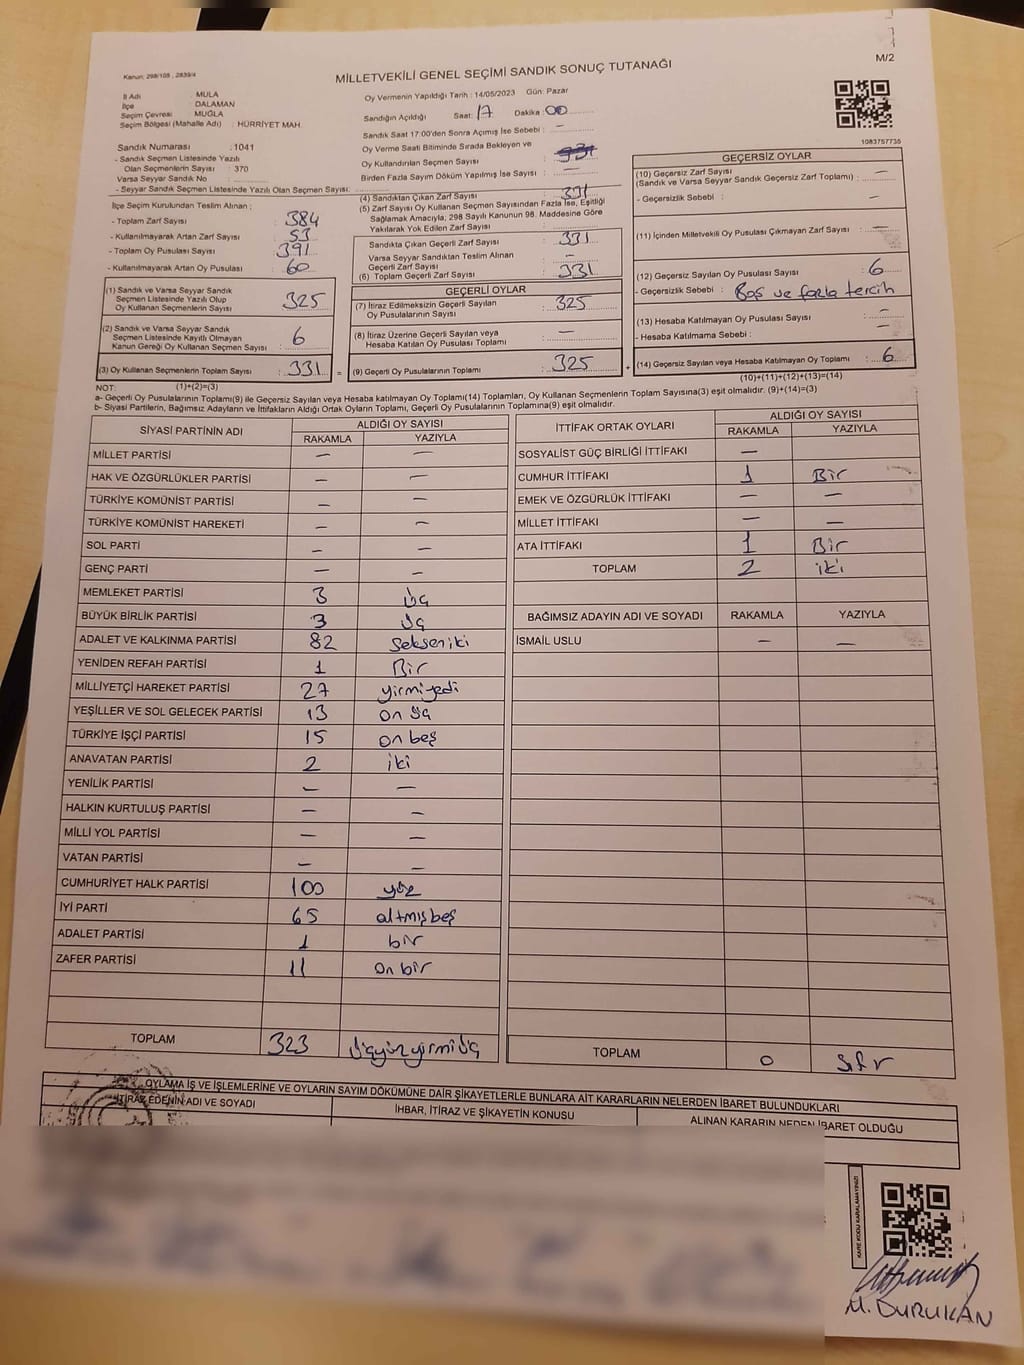 Kanun: 298/105 , 2839/4
MİLLETVEKİLİ GENEL SEÇİMİ SANDIK SONUÇ TUTANAĞI
M/2
İl Adı : MULA
İlçe : DALAMAN
Seçim Çevresi : MUĞLA
Seçim Bölgesi (Mahalle Adı) : HÜRRİYET MAH.
Sandık Numarası : 1041
- Sandık Seçmen Listesinde Yazılı
Olan Seçmenlerin Sayısı : 370
Varsa Seyyar Sandık No :
- Seyyar Sandık Seçmen Listesinde Yazılı Olan Seçmen Sayısı:
Oy Vermenin Yapıldığı Tarih : 14/05/2023 Gün: Pazar
Sandığın Açıldığı Saat: 17 Dakika : 00
Sandık Saat 17:00'den Sonra Açımış İse Sebebi : —
Oy Verme Saati Bitiminde Sırada Bekleyen ve
Oy Kullandırılan Seçmen Sayısı :
Birden Fazla Sayım Döküm Yapılmış İse Sayısı : —
1083757735
İlçe Seçim Kurulundan Teslim Alınan ;
- Toplam Zarf Sayısı : 384
- Kullanılmayarak Artan Zarf Sayısı : 53
- Toplam Oy Pusulası Sayısı : 391
- Kullanılmayarak Artan Oy Pusulası : 60
(1) Sandık ve Varsa Seyyar Sandık
Seçmen Listesinde Yazılı Olup
Oy Kullanan Seçmenlerin Sayısı : 325
(2) Sandık ve Varsa Seyyar Sandık
Seçmen Listesinde Kayıtlı Olmayan
Kanun Gereği Oy Kullanan Seçmen Sayısı : 6
(3) Oy Kullanan Seçmenlerin Toplam Sayısı : 331 =
(4) Sandıktan Çıkan Zarf Sayısı : 331
(5) Zarf Sayısı Oy Kullanan Seçmen Sayısından Fazla İse, Eşitliği
Sağlamak Amacıyla, 298 Sayılı Kanunun 98. Maddesine Göre
Yakılarak Yok Edilen Zarf Sayısı :
Sandıkta Çıkan Geçerli Zarf Sayısı : 331
Varsa Seyyar Sandıktan Teslim Alınan
Geçerli Zarf Sayısı : —
(6) Toplam Geçerli Zarf Sayısı : 331
GEÇERLİ OYLAR
(7) İtiraz Edilmeksizin Geçerli Sayılan
Oy Pusulalarının Sayısı : 325
(8) İtiraz Üzerine Geçerli Sayılan veya
Hesaba Katılan Oy Pusulası Toplamı : —
(9) Geçerli Oy Pusulalarının Toplamı : 325 +
GEÇERSİZ OYLAR
(10) Geçersiz Zarf Sayısı
(Sandık ve Varsa Seyyar Sandık Geçersiz Zarf Toplamı) : —
- Geçersizlik Sebebi : —
(11) İçinden Milletvekili Oy Pusulası Çıkmayan Zarf Sayısı : —
(12) Geçersiz Sayılan Oy Pusulası Sayısı : 6
- Geçersizlik Sebebi : Boş ve fazla tercih
(13) Hesaba Katılmayan Oy Pusulası Sayısı : —
- Hesaba Katılmama Sebebi : —
(14) Geçersiz Sayılan veya Hesaba Katılmayan Oy Toplamı : 6
NOT: (1)+(2)=(3)
(10)+(11)+(12)+(13)=(14)
a- Geçerli Oy Pusulalarının Toplamı(9) ile Geçersiz Sayılan veya Hesaba Katılmayan Oy Toplamı(14) Toplamları, Oy Kullanan Seçmenlerin Toplam Sayısına(3) eşit olmalıdır. (9)+(14)=(3)
b- Siyasi Partilerin, Bağımsız Adayların ve İttifakların Aldığı Ortak Oyların Toplamı, Geçerli Oy Pusulalarının Toplamına(9) eşit olmalıdır.
SİYASİ PARTİNİN ADI ALDIĞI OY SAYISI
RAKAMLA YAZIYLA
MİLLET PARTİSİ — —
HAK VE ÖZGÜRLÜKLER PARTİSİ — —
TÜRKİYE KOMÜNİST PARTİSİ — —
TÜRKİYE KOMÜNİST HAREKETİ — —
SOL PARTİ — —
GENÇ PARTİ — —
MEMLEKET PARTİSİ 3 Üç
BÜYÜK BİRLİK PARTİSİ 3 Üç
ADALET VE KALKINMA PARTİSİ 82 Seksen iki
YENİDEN REFAH PARTİSİ 1 Bir
MİLLİYETÇİ HAREKET PARTİSİ 27 yirmi yedi
YEŞİLLER VE SOL GELECEK PARTİSİ 13 on üç
TÜRKİYE İŞÇİ PARTİSİ 15 on beş
ANAVATAN PARTİSİ 2 iki
YENİLİK PARTİSİ — —
HALKIN KURTULUŞ PARTİSİ — —
MİLLİ YOL PARTİSİ — —
VATAN PARTİSİ — —
CUMHURİYET HALK PARTİSİ 100 yüz
İYİ PARTİ 65 altmışbeş
ADALET PARTİSİ 1 bir
ZAFER PARTİSİ 11 on bir
TOPLAM 323 Üçyüzyirmiüç
İTTİFAK ORTAK OYLARI ALDIĞI OY SAYISI
RAKAMLA YAZIYLA
SOSYALİST GÜÇ BİRLİĞİ İTTİFAKI —
CUMHUR İTTİFAKI 1 Bir
EMEK VE ÖZGÜRLÜK İTTİFAKI — —
MİLLET İTTİFAKI — —
ATA İTTİFAKI 1 Bir
TOPLAM 2 iki
BAĞIMSIZ ADAYIN ADI VE SOYADI RAKAMLA YAZIYLA
İSMAİL USLU — —
TOPLAM 0 Sıfır
OYLAMA İŞ VE İŞLEMLERİNE VE OYLARIN SAYIM DÖKÜMÜNE DAİR ŞİKAYETLERLE BUNLARA AİT KARARLARIN NELERDEN İBARET BULUNDUKLARI
İTİRAZ EDENİN ADI VE SOYADI İHBAR, İTİRAZ VE ŞİKAYETİN KONUSU ALINAN KARARIN NEDEN İBARET OLDUĞU
KARE KODU KARALAMAYINIZ!
M. DURUKAN